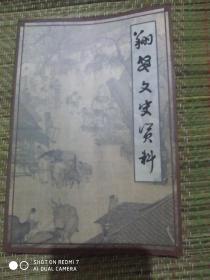 翔安文史资料
SHOT ON REDMI 7
AI DUAL CAMERA